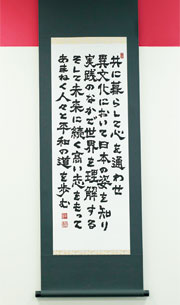 共に暮らして心を通わせ
異文化において日本の姿を知り
実践のなかで世界を理解する
そして未来に続く高い志をもって
あまねく人々と平和の道を歩む